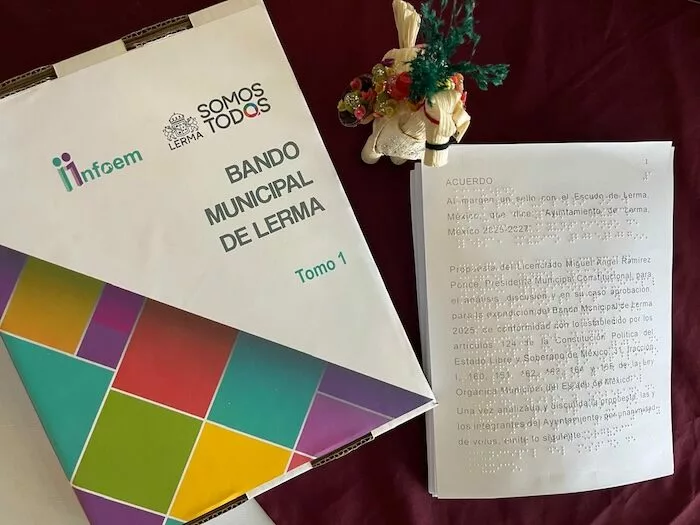 infoem
LERMA
SOMOS
TODOS
BANDO
MUNICIPAL
DE LERMA
Tomo 1
1
ACUERDO
Al margen un sello con el Escudo de Lerma,
México, que dice: Ayuntamiento de Lerma,
México 2025-2027.
Propuesta del Licenciado Miguel Ángel Ramírez
Ponce, Presidente Municipal Constitucional, para
el análisis, discusión y en su caso aprobación
para la expedición del Bando Municipal de Lerma
2025, de conformidad con lo establecido por los
artículos 124 de la Constitución Política del
Estado Libre y Soberano de México, 31, fracción
I, 160, 161, 162, 163, 164 y 165 de la Ley
Orgánica Municipal del Estado de México.
Una vez analizada y discutida la propuesta, las y
los integrantes del Ayuntamiento, por unanimidad
de votos, emite lo siguiente: